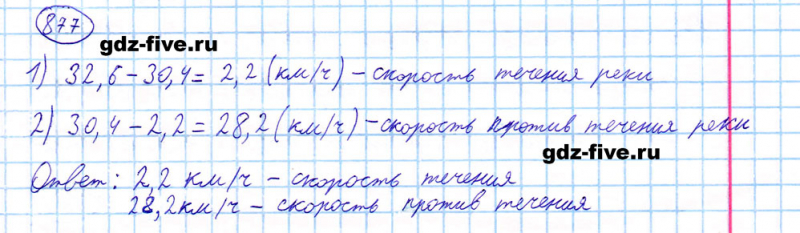 877
gdz-five.ru
1) 32,6 – 30,4 = 2,2 (км/ч) – скорость течения реки
2) 30,4 – 2,2 = 28,2 (км/ч) – скорость против течения реки
gdz-five.ru
Ответ: 2,2 км/ч – скорость течения
28,2 км/ч – скорость против течения